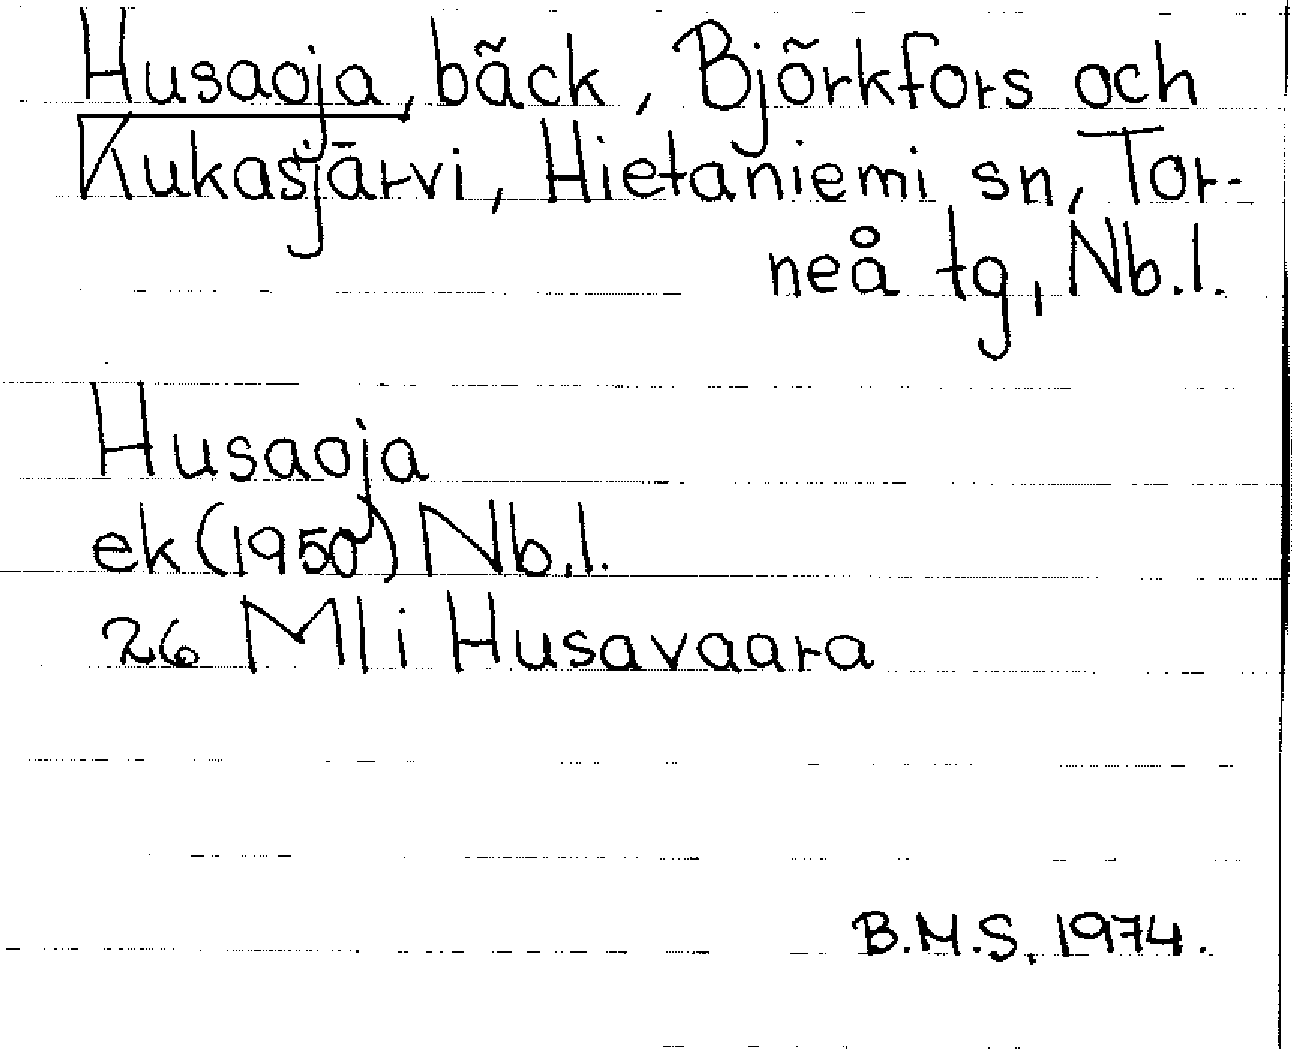 Husaoja, bäck, Björkfors och
Kukasjärvi, Hietaniemi sn, Tor-
neå tg, Nb.l.
Husaoja
ek (1950) Nb.l.
26 Ml i Husavaara
B.M.S. 1974.